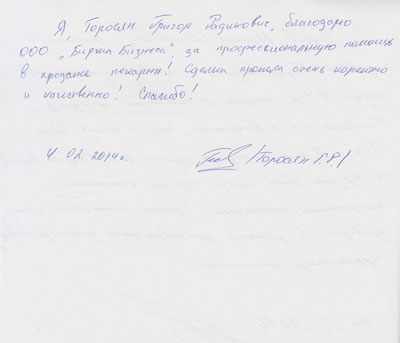 Я, Торосян Григор Радикович, благодарю
ООО "Биржа Бизнеса", за профессиональную помощь
в продаже пекарни! Сделка прошла очень корекно
и качественно! Спасибо!
4 02. 2014г. /Торосян Г.Р./